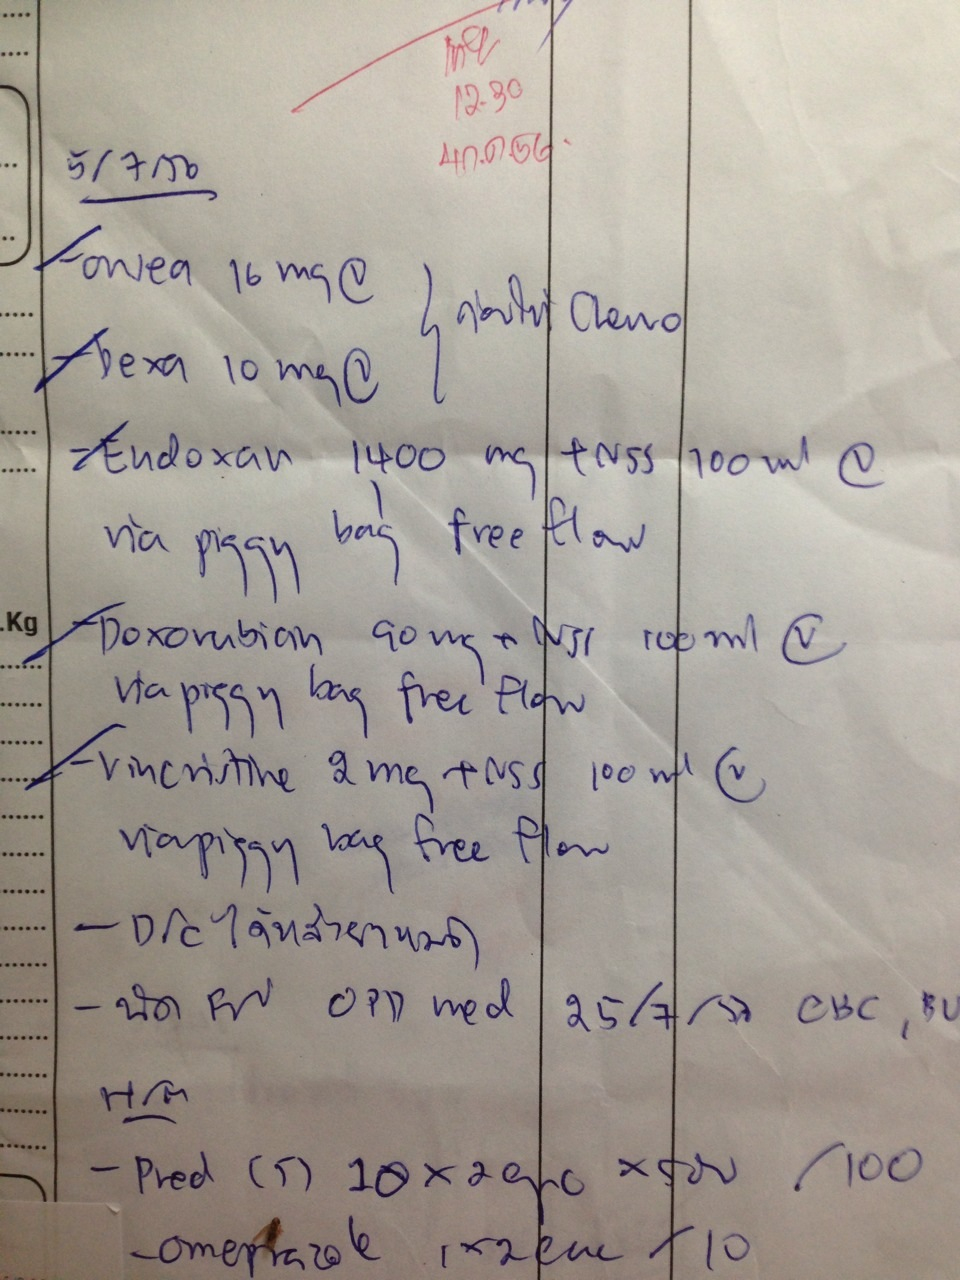 12.30
4 ก.ค. 56
5/7/56
- onsea 16 mg Ⓥ
- Dexa 10 mg Ⓥ
} ก่อนให้ Chemo
- Endoxan 1400 mg + NSS 100 ml Ⓥ
via piggy bag free flow
.Kg
- Doxorubicin 90 mg + NSS 100 ml Ⓥ
via piggy bag free flow
- Vincristine 2 mg + NSS 100 ml Ⓥ
via piggy bag free flow
- D/C ได้หลังยาหมด
- นัด F/U OPD med 25/7/56 CBC, BU
H/M
- Pred (5) 10 × 2 pc × 5 วัน /100
- omeprazole 1×2 ac /10